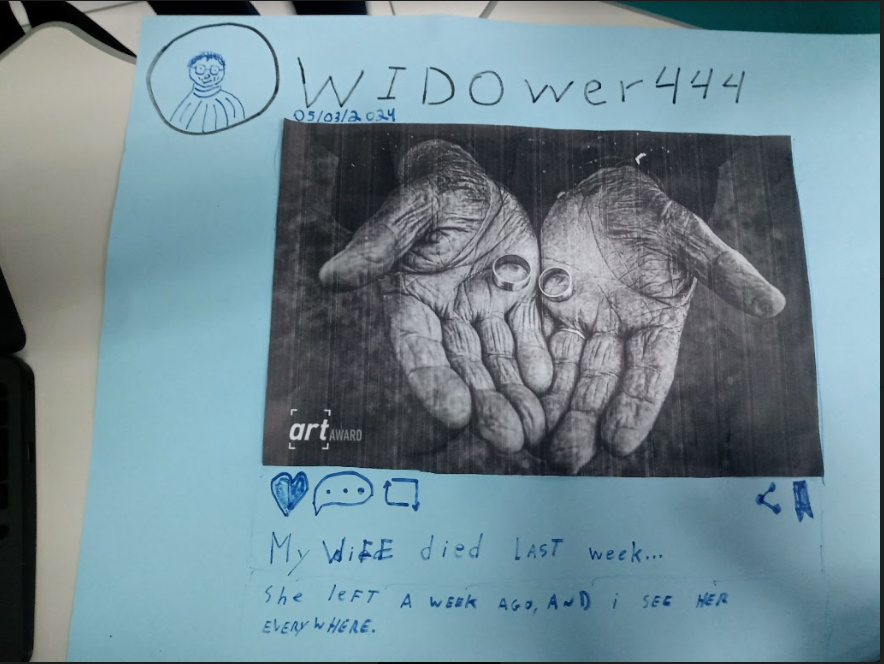 WIDOwer444
05/03/2024
art AWARD
My WiFE died LAST week...
She leFT A WEEK AGO, AND i SEE HER
EVERYWHERE.